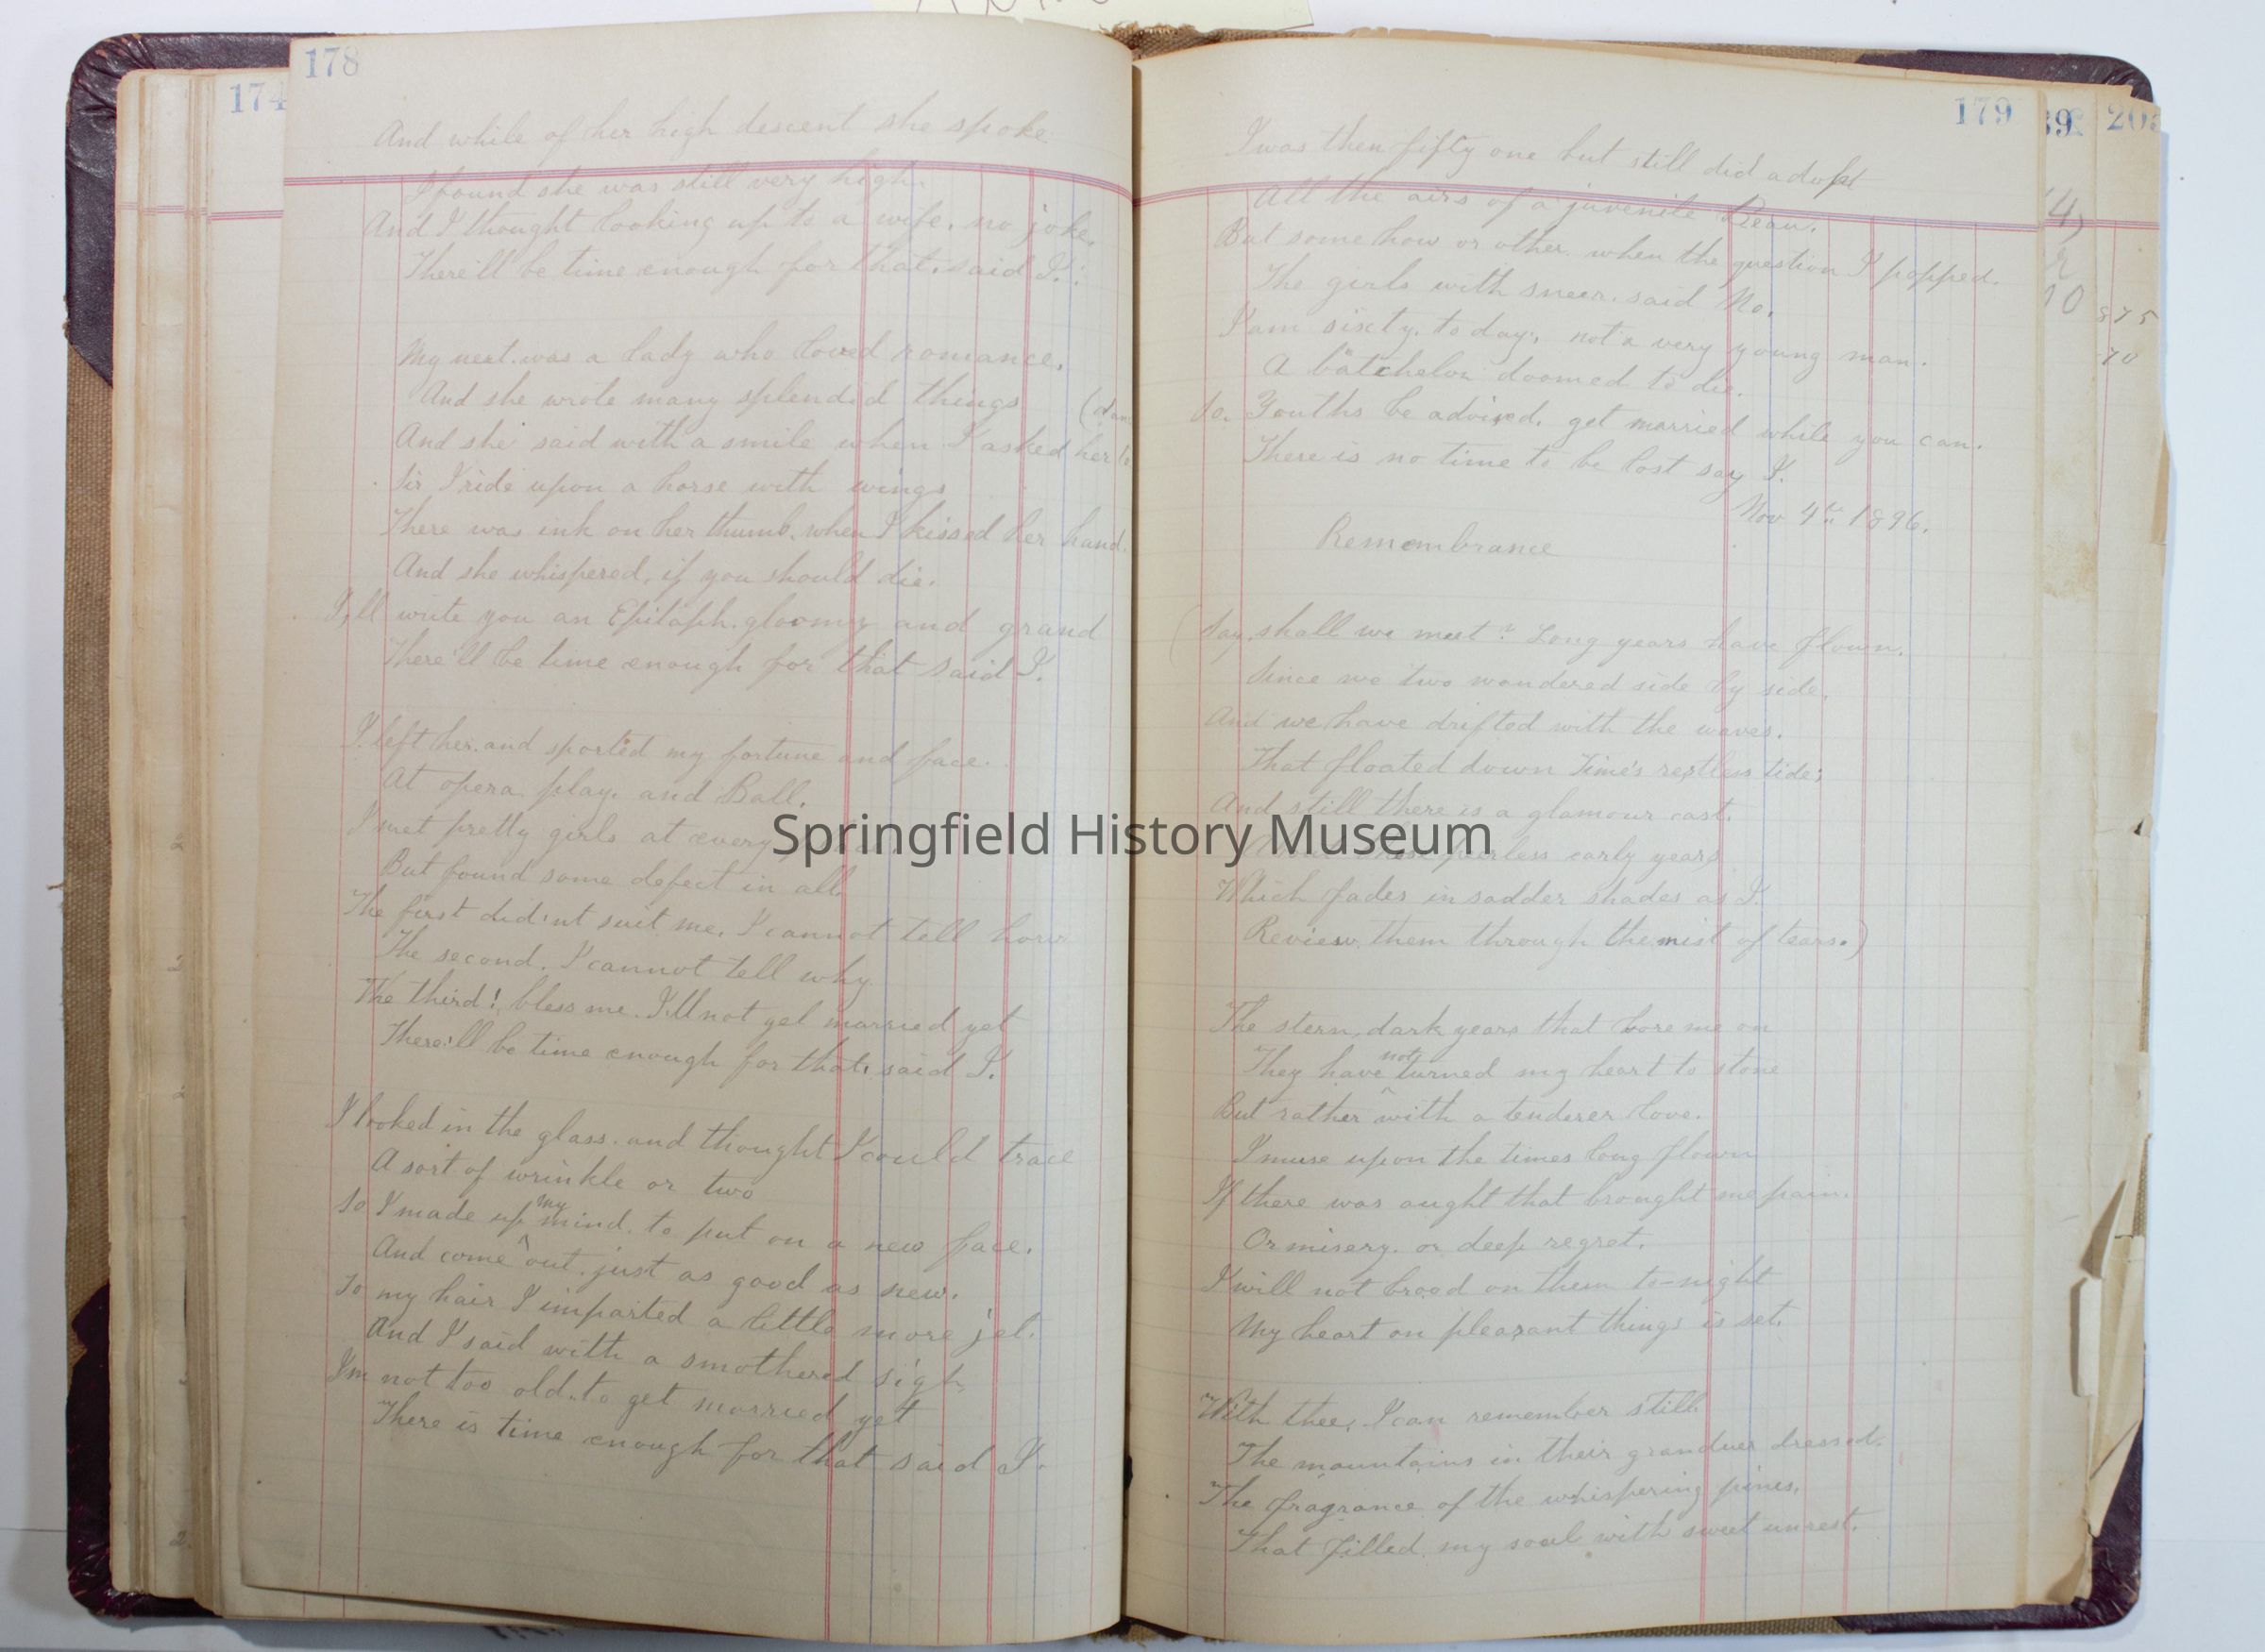 178
And while of her high descent she spoke
I found she was still very high.
And I thought looking up to a wife, no joke,
There'll be time enough for that, said I.
My next was a lady who loved romance,
And she wrote many splendid things
And she said with a smile when I asked her to
Sir I ride upon a horse with wings
There was ink on her thumb, when I kissed her hand.
And she whispered, if you should die.
I,ll write you an Epitaph gloomy and grand
There'll be time enough for that said I.
I left her and sported my fortune and face.
At opera play, and Ball.
I met pretty girls at every
But found some defect in all.
The first did'nt suit me, I cannot tell how
The second, I cannot tell why
The third! bless me. I'll not get married yet
There'll be time enough for that, said I.
I looked in the glass and thought I could trace
A sort of wrinkle or two
So I made up my mind to put on a new face.
And come out just as good as new.
To my hair I imparted a little more jet.
And I said with a smothered sigh,
I'm not too old to get married yet
There is time enough for that said I.
179
I was then fifty one but still did adopt
All the airs of a juvenile Beau.
But some how or other when the question I popped.
The girls with sneer said No.
I am sixty to day, not a very young man.
A batchelor doomed to die.
So. Youths be advised, get married while you can.
There is no time to be lost say I.
Nov 4th 1896.
Remembrance
(Say, shall we meet? Long years have flown,
Since we two wandered side by side,
And we have drifted with the waves.
That floated down Time's restless tide;
And still there is a glamour cast.
those peerless early years
Which fades in sadder shades as I.
Review them through the mist of tears.)
The stern, dark years that bore me on
They have not turned my heart to stone
But rather with a tenderer love.
I muse upon the times long flown
If there was aught that brought me pain.
Or misery, or deep regret.
I will not brood on them to-night
My heart on pleasant things is set.
With thee, I can remember still
The mountains in their granduer dressed.
The fragrance of the whispering pines,
That filled my soul with sweet unrest.
174
203
875
70
Springfield History Museum